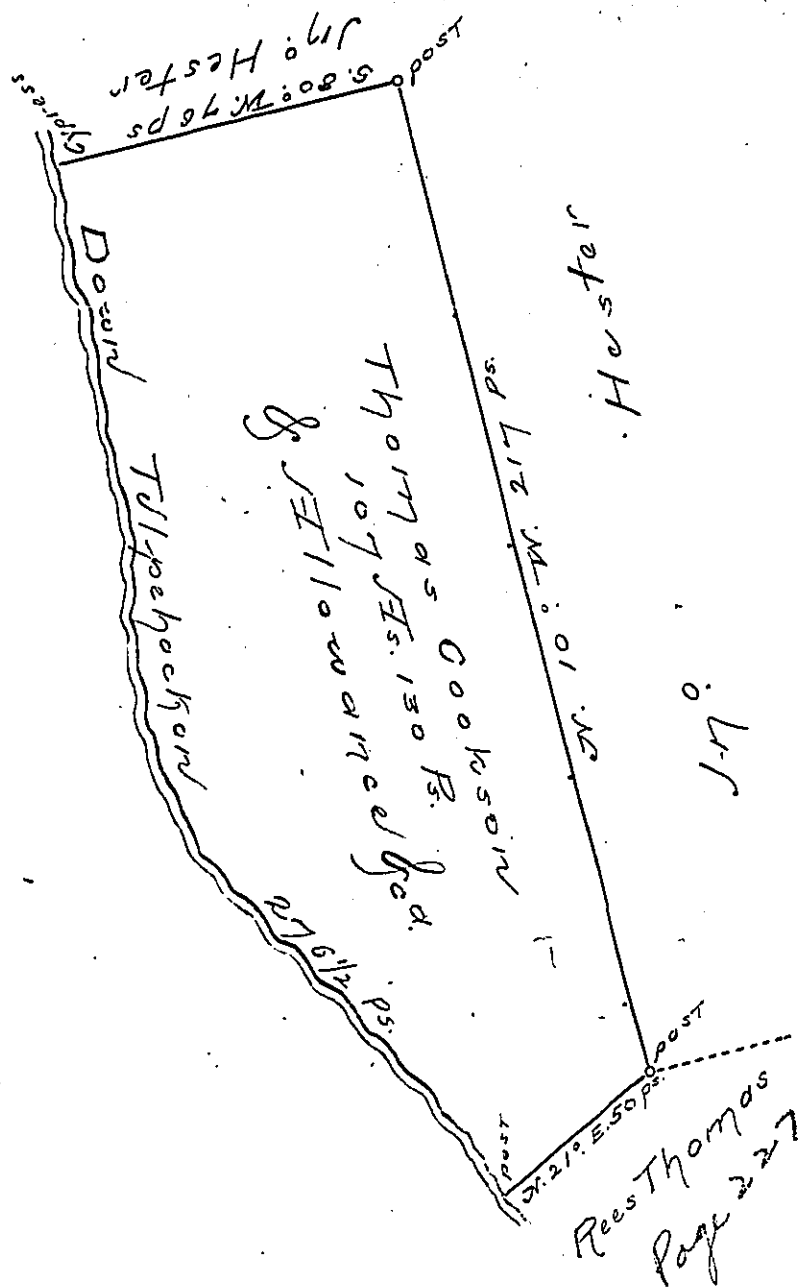 Jno. Hester
S. 80° W. 76 ps
Cypress
post
Hester
N. 10° W. 217 ps.
Jno.
Thomas Cookson
107 As. 130 Ps.
& Allowance &ca.
Down Tulpehockon
276 1/2 ps.
post
N. 21° E. 50 ps.
post
Rees Thomas
Page 227